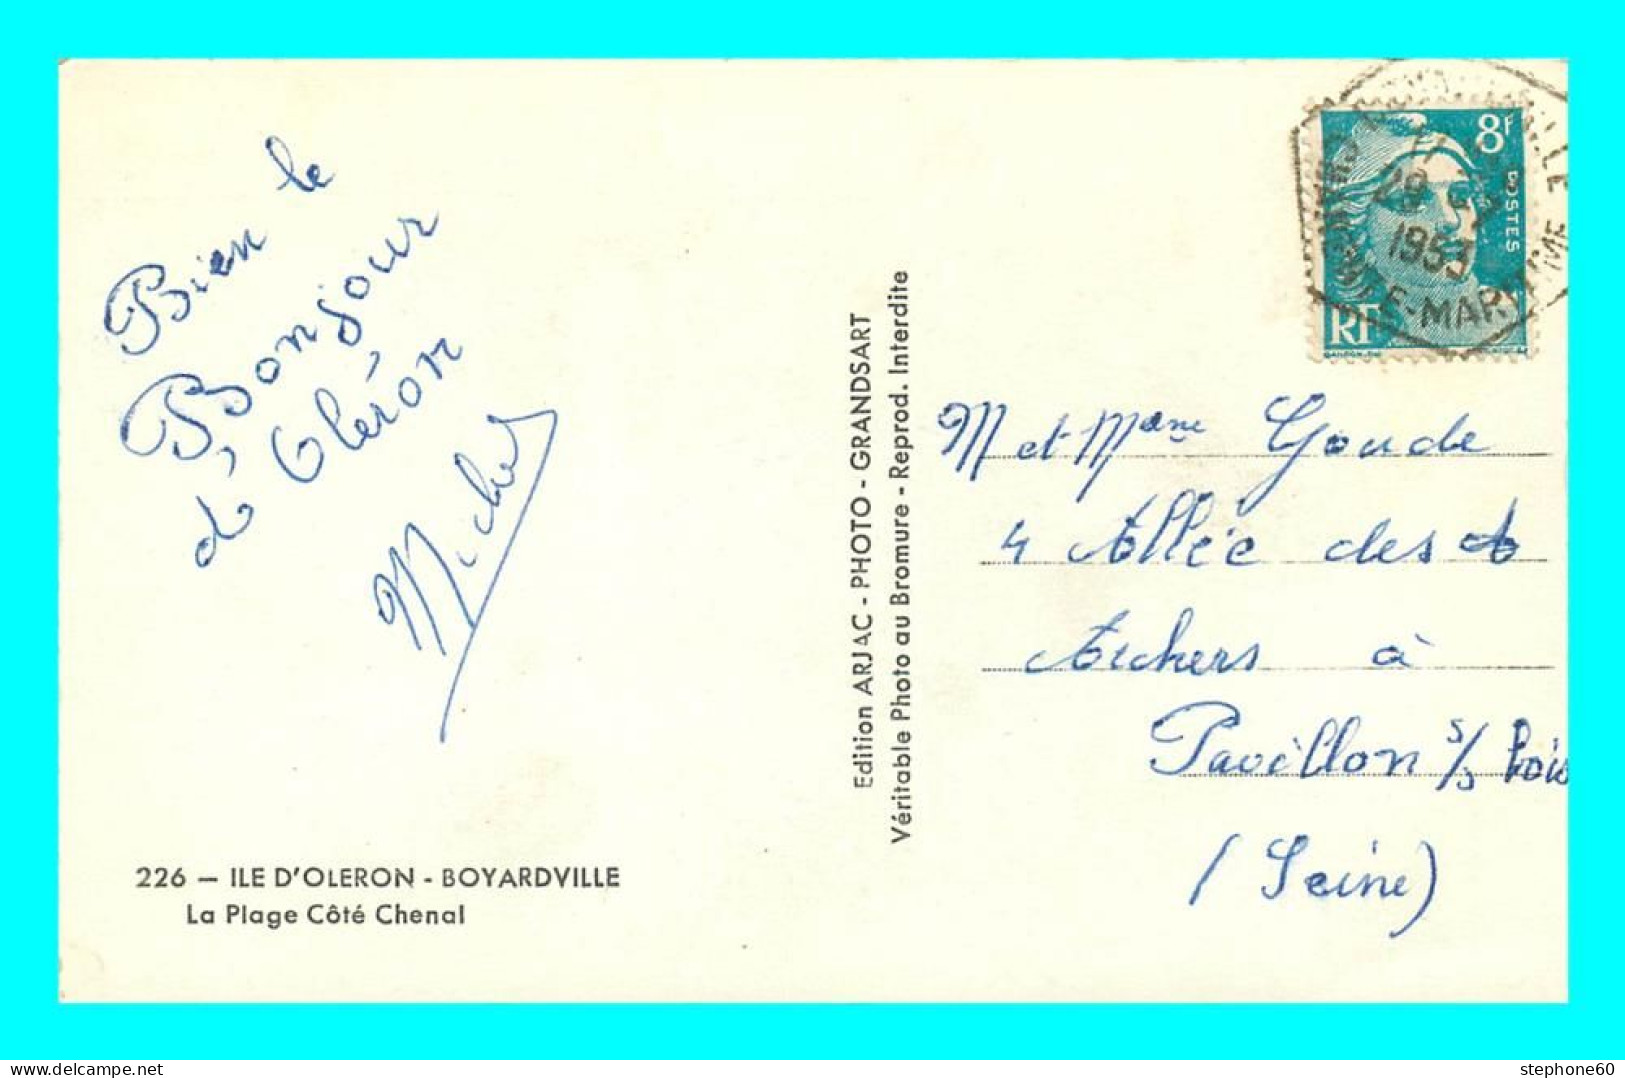 Bien le
Bonjour
d'Oléron
Michel
226 – ILE D'OLERON - BOYARDVILLE
La Plage Côté Chenal
Edition ARJAC - PHOTO - GRANDSART
Véritable Photo au Bromure - Reprod. Interdite
8F
POSTES
RF
1953
M et Mme Goude
4 Allée des
Archers à
Pavillon s/s Bois
(Seine)
stephone60